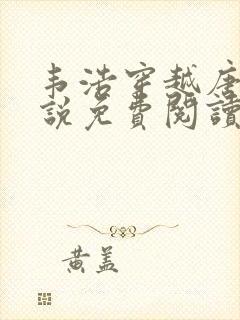 韦浩穿越唐
說免費閱讀
黄盖